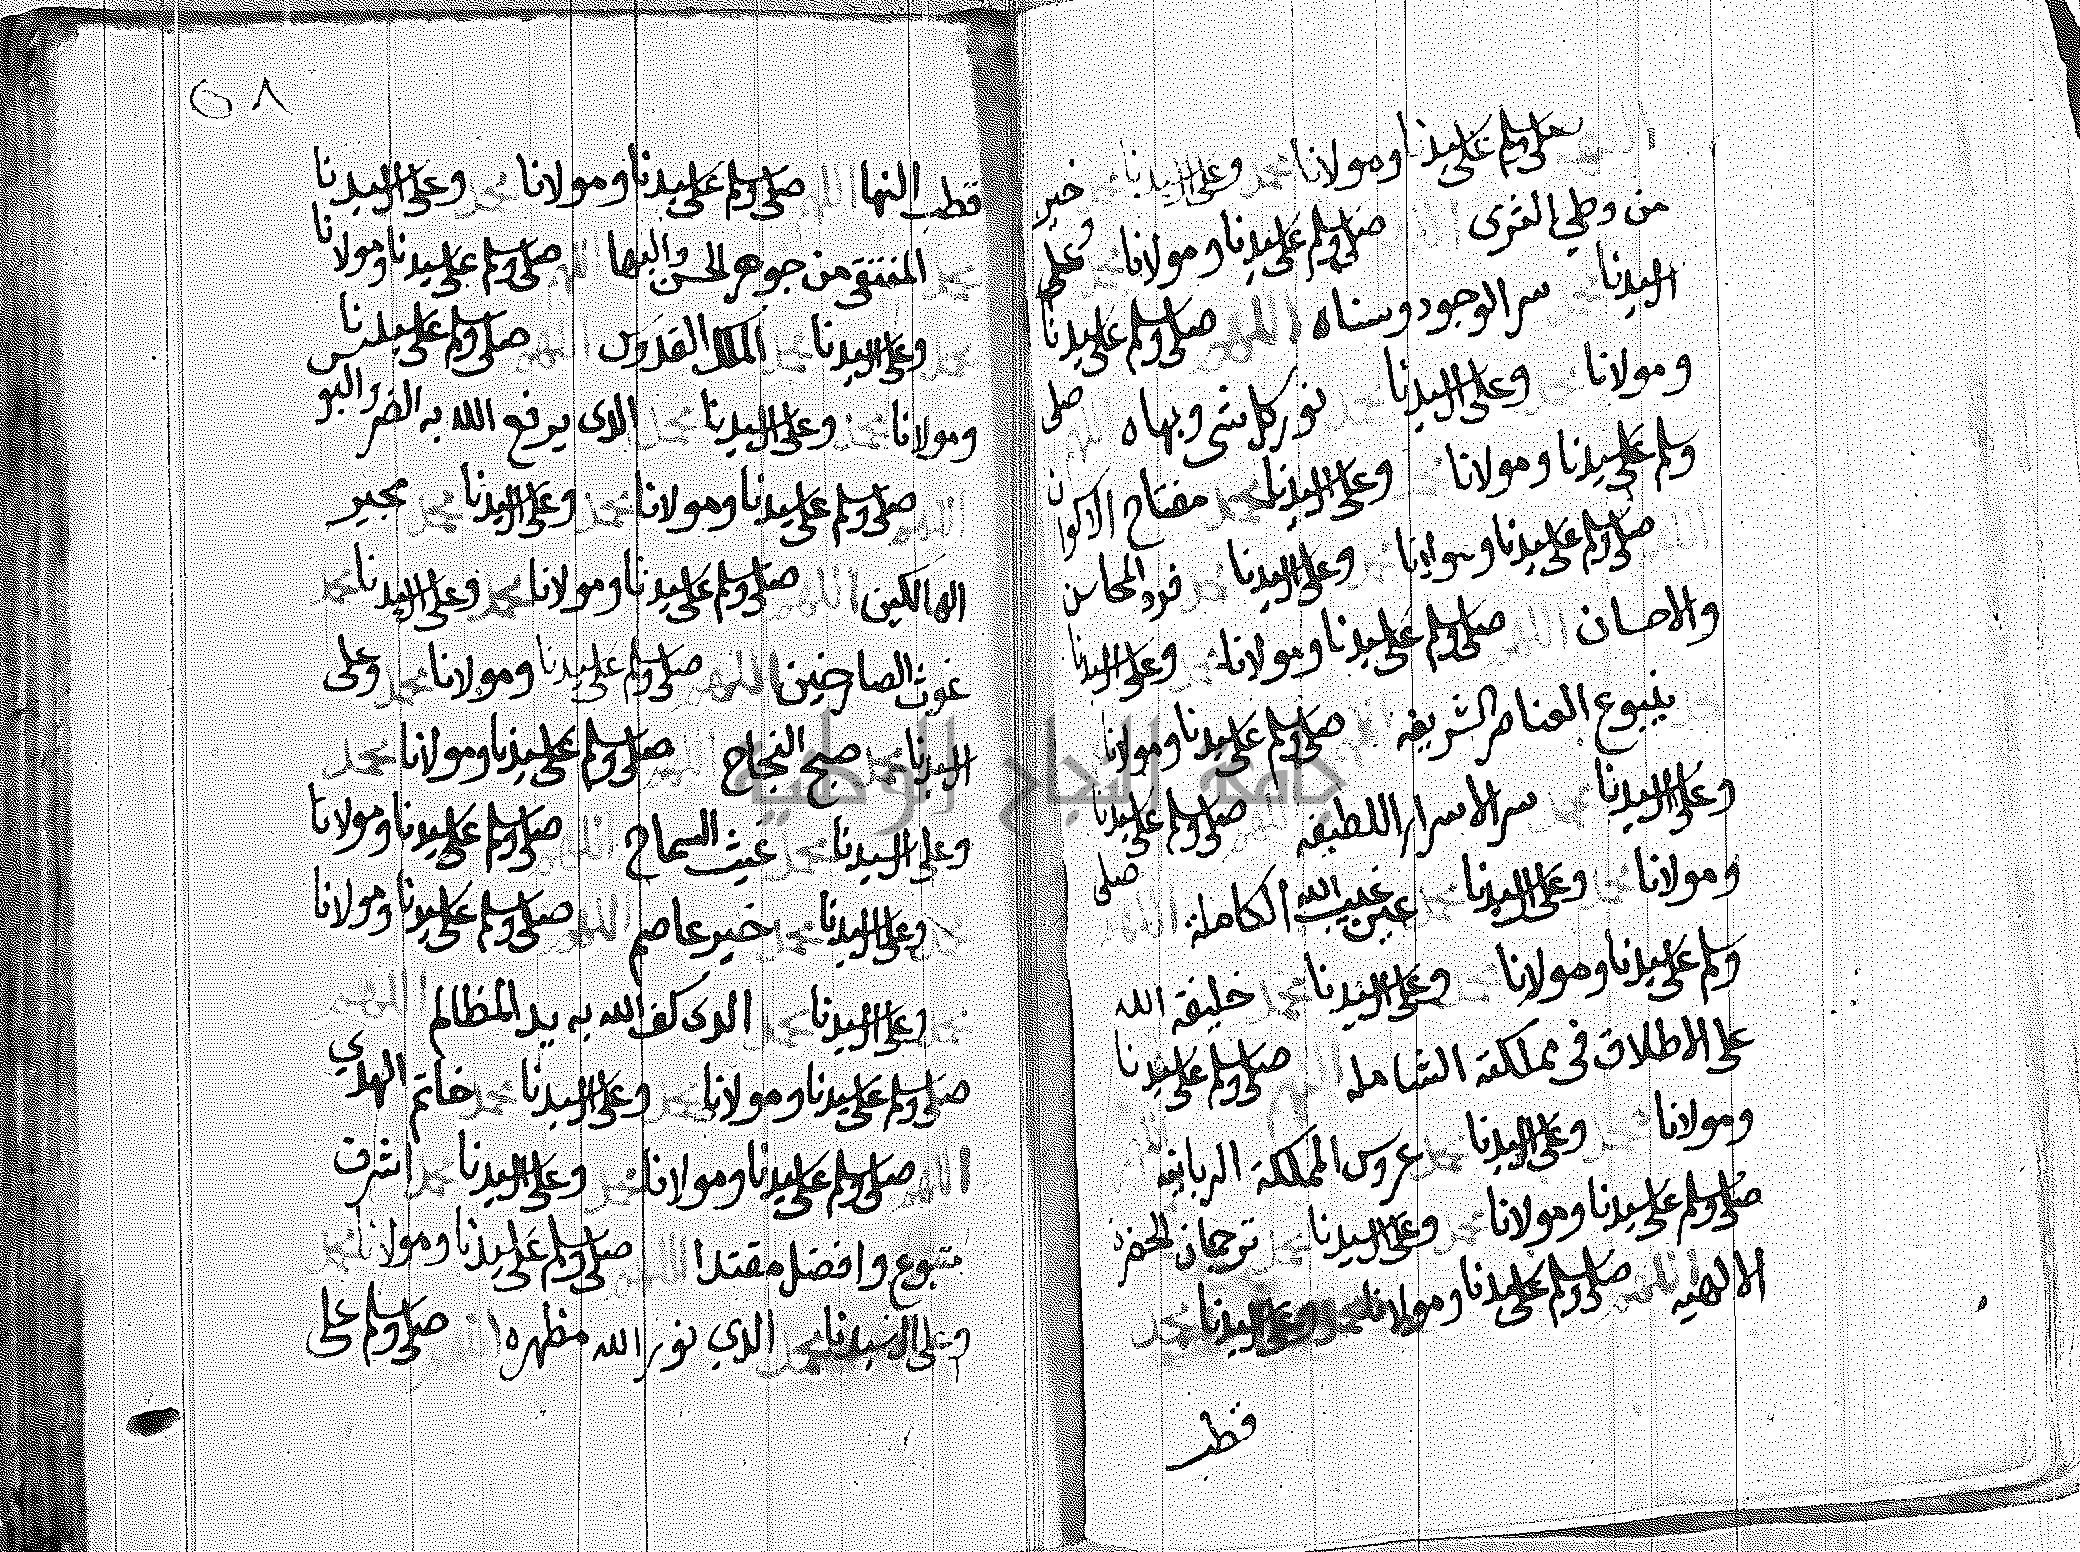 اللهم صل وسلم على سيدنا ومولانا محمد وعلى ال سيدنا محمد خير
من وطي الثرى اللهم صل وسلم على سيدنا ومولانا محمد وعلى
ال سيدنا محمد سر الوجود وسناه اللهم صل وسلم على سيدنا
ومولانا محمد وعلى ال سيدنا محمد نور كل شي وبهاه اللهم صل
وسلم على سيدنا ومولانا محمد وعلى ال سيدنا محمد مفتاح الاكوان
اللهم صل وسلم على سيدنا ومولانا محمد وعلى ال سيدنا محمد فرد المحاسن
والاحسان اللهم صل وسلم على سيدنا ومولانا محمد وعلى ال سيدنا
ينبوع العناصر الشريفه اللهم صل وسلم على سيدنا ومولانا
وعلى ال سيدنا محمد سر الاسرار اللطيفه اللهم صل وسلم على سيدنا
ومولانا محمد وعلى ال سيدنا محمد عين غيب الله الكاملة اللهم صلى
وسلم على سيدنا ومولانا محمد وعلى ال سيدنا محمد خليفة الله
على الاطلاق في مملكته الشامله اللهم صل وسلم على سيدنا
ومولانا محمد وعلى ال سيدنا محمد عروس المملكة الربانيه
صل وسلم على سيدنا ومولانا محمد وعلى ال سيدنا محمد ترجمان الحضرة
الالهيه اللهم صل وسلم على سيدنا ومولانا محمد وعلى ال سيدنا محمد
قطب
٥٨
قطب النها اللهم صل وسلم على سيدنا ومولانا محمد وعلى ال سيدنا
محمد المنتقى من جوهر الحسن والبها اللهم صل وسلم على سيدنا ومولانا
محمد وعلى ال سيدنا محمد الملك القدوس اللهم صل وسلم على سيدنا
ومولانا محمد وعلى ال سيدنا محمد الذى يرفع الله به الضر والبوس
اللهم صل وسلم على سيدنا ومولانا محمد وعلى ال سيدنا محمد مجير
الهالكين اللهم صل وسلم على سيدنا ومولانا محمد وعلى ال سيدنا محمد
غوث الصارخين اللهم صل وسلم على سيدنا ومولانا محمد وعلى
ال سيدنا محمد صبح النجاح اللهم صل وسلم على سيدنا ومولانا محمد
وعلى ال سيدنا محمد غيث السماح اللهم صل وسلم على سيدنا ومولانا
محمد وعلى ال سيدنا محمد خير عاصم اللهم صل وسلم على سيدنا ومولانا
محمد وعلى ال سيدنا محمد الذى كف الله به يد المظالم اللهم
صل وسلم على سيدنا ومولانا محمد وعلى ال سيدنا محمد خاتم الهدي
اللهم صل وسلم على سيدنا ومولانا محمد وعلى ال سيدنا محمد اشرف
متبوع وافضل مقتدا اللهم صل وسلم على سيدنا ومولانا محمد
وعلى ال سيدنا محمد الذي نور الله مظهره اللهم صل وسلم على
جامعة النجاح الوطنية